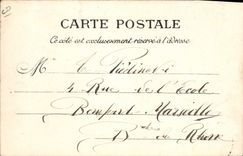 CARTE POSTALE
Ce côté est exclusivement réservé à l'adresse
M
4 Rue de l'École
Bompard Marseille
B du Rhône